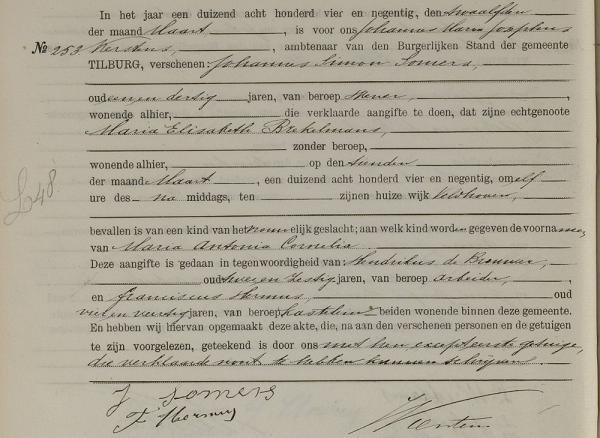 In het jaar een duizend acht honderd vier en negentig, den twaalfden
der maand Maart, is voor ons Johannes Maria Josephus
No 253. Kerstens, ambtenaar van den Burgerlijken Stand der gemeente
TILBURG, verschenen: Johannes Simon Somers,
oud een en dertig jaren, van beroep wever,
wonende alhier, die verklaarde aangifte te doen, dat zijne echtgenoote
Maria Elisabeth Brekelmans,
zonder beroep,
wonende alhier, op den tienden
der maand Maart, een duizend acht honderd vier en negentig, om elf
ure des na middags, ten zijnen huize wijk Veldhoven,
bevallen is van een kind van het vrouwelijk geslacht; aan welk kind worden gegeven de voornamen,
van Maria Antonia Cornelia.
Deze aangifte is gedaan in tegenwoordigheid van Hendrikus de Brouwer,
oud twee en zestig jaren, van beroep arbeider,
en Franciscus Hermus, oud
vier en veertig jaren, van beroep beiden wonende binnen deze gemeente.
En hebben wij hiervan opgemaakt deze akte, die, na aan den verschenen personen en de getuigen
te zijn voorgelezen, geteekend is door ons met den getuige,
die verklaarde nooit te hebben kunnen schrijven.
J Somers
F Hermus